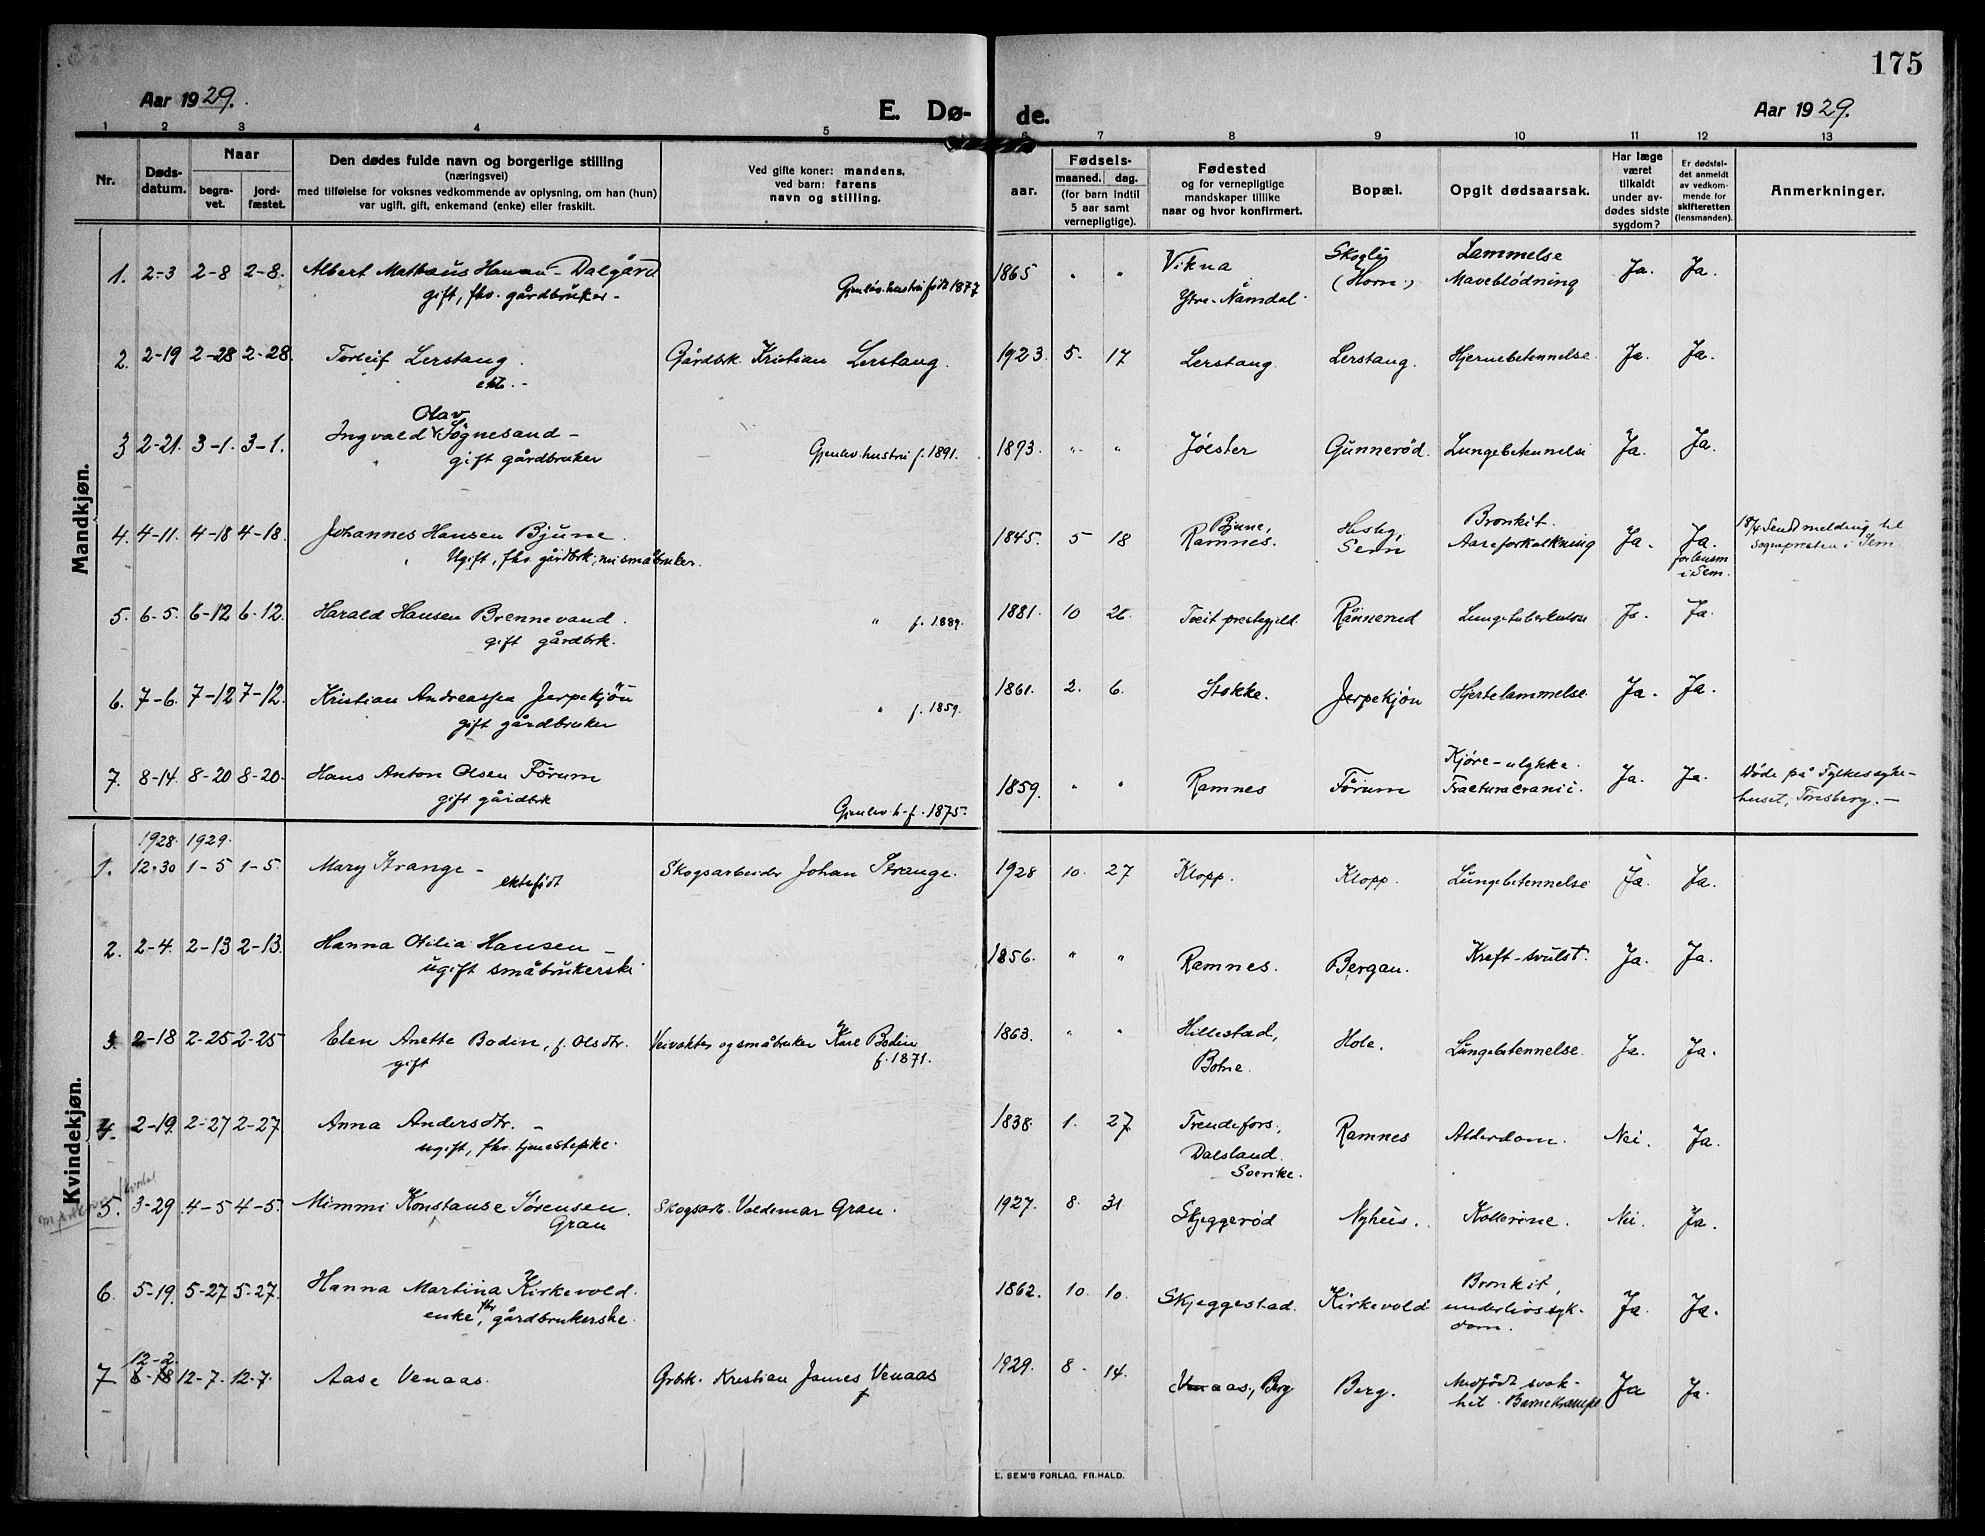 175
Aar 1929.
E. Dø-
de.
Aar 1929.
1 2 3 4 5 6 7 8 9 10 11 12 13
Nr.
Døds-
datum.
Naar
begra-
vet.
jord-
fæstet.
Den dødes fulde navn og borgerlige stilling
(næringsvei)
med tilføielse for voksnes vedkommende av oplysning, om han (hun)
var ugift, gift, enkemand (enke) eller fraskilt.
Ved gifte koner: mandens,
ved barn: farens
navn og stilling.
aar.
Fødsels-
maaned. dag.
(for barn indtil
5 aar samt
vernepligtige).
Fødested
og for vernepligtige
mandskaper tillike
naar og hvor konfirmert.
Bopæl.
Opgit dødsaarsak.
Har læge
været
tilkaldt
under av-
dødes sidste
sygdom?
Er dødsfal-
det anmeldt
av vedkom-
mende for
skifteretten
(lensmanden).
Anmerkninger.
Mandkjøn.
1. 2-3 2-8 2-8. Albert Mathæus Hansen-Dalgård
gift, fhv. gårdbruker-
Gjenlev. hustru født 1877
1865 " " Vikna
Ytre-Namdal.
Skogly
(Horn.)
Lammelse
Maveblödning
Ja. Ja.
2. 2-19 2-28 2-28. Torleif Lerstang.
ekte.-
Gårdbr. Kristian Lerstang.
1923. 5. 17 Lerstang. Lerstang. Hjernebetennelse. Ja. Ja.
3 2-21. 3-1. 3-1. Ingvald Olav Søgnesand-
gift gårdbruker
Gjenlev. hustru f. 1891.
1893. " " Jølster Gunnerød. Lungebetennelse Ja. Ja.
4. 4-11. 4-18 4-18. Johannes Hansen Bjune.
Ugift, fhv. gårdbr., nu småbruker.
1845. 5 18 Bjune,
Ramnes.
Hesby,
Sem
Bronkit.
Aareforkalkning
Ja. Ja.
for lensm.
i Sem.
18/4 Sendt melding til
Sognepresten i Sem
5. 6-5. 6-12 6-12. Harald Hansen Brennevand.
gift gårdbr.
" f. 1889.
1881. 10 26. Tveit prestegjeld. Rånnerud Lungetuberkulose Ja. Ja.
6. 7-6. 7-12 7-12. Kristian Andreassen Jerpekjøn
gift gårdbruker
" f. 1859.
1861. 2. 6. Stokke. Jerpekjøn Hjertelammelse. Ja. Ja.
7. 8-14. 8-20 8-20. Hans Anton Olsen Førum
gift gårdbr
Gjenlev h-f. 1875.
1859. " " Ramnes Førum
Kjøre-ulykke.
Fractura cranii.
Ja. Ja.
Døde på Fylkessyke-
huset, Tønsberg.-
Kvindekjøn.
1928. 1929.
1. 12-30 1-5 1-5. Mary Strange-
ektefødt
Skogsarbeider Johan Strange.
1928 10. 27 Klopp. Klopp. Lungebetennelse Ja. Ja.
2. 2-4. 2-13 2-13. Hanna Otilia Hansen-
ugift småbrukerske
1856. " " Ramnes. Bergan. Kreft-svulst. Ja. Ja.
3. 2-18 2-25 2-25 Elen Anette Bodin, f. Olsdtr.
gift
Veivokter og småbruker Karl Bodin
f. 1871.
1863. " " Hillestad,
Botne.
Hole. Lungebetennelse. Ja. Ja.
4. 2-19. 2-27 2-27. Anna Andersdtr.-
ugift, fhv. tjenestepike.
1838. 1. 27. Trendefors,
Dalsland.
Sverike.
Ramnes Alderdom. Nei. Ja.
5. 3-29. 4-5 4-5. Mimmi Konstanse Sørensen.
Gran
Skogsarb. Valdemar Gran.
1927. 8. 31. Skjeggerød Nyhus. Kollerine. Nei. Ja.
6. 5-19. 5-27 5-27. Hanna Martina Kirkevold.
enke, fhv gårdbrukerske.
1862. 10. 10. Skjeggestad. Kirkevold
Bronkit,
underlivssyk-
dom.
Ja. Ja.
12-2
7 8-18 12-7. 12-7. Aase Venaas.
Grbr. Kristian James Venaas
1929. 8. 14. Venaas, Berg Berg.
Medfødt svak-
het. Barnekrampe
Ja Ja.
E. SEM'S FORLAG, FR.HALD.